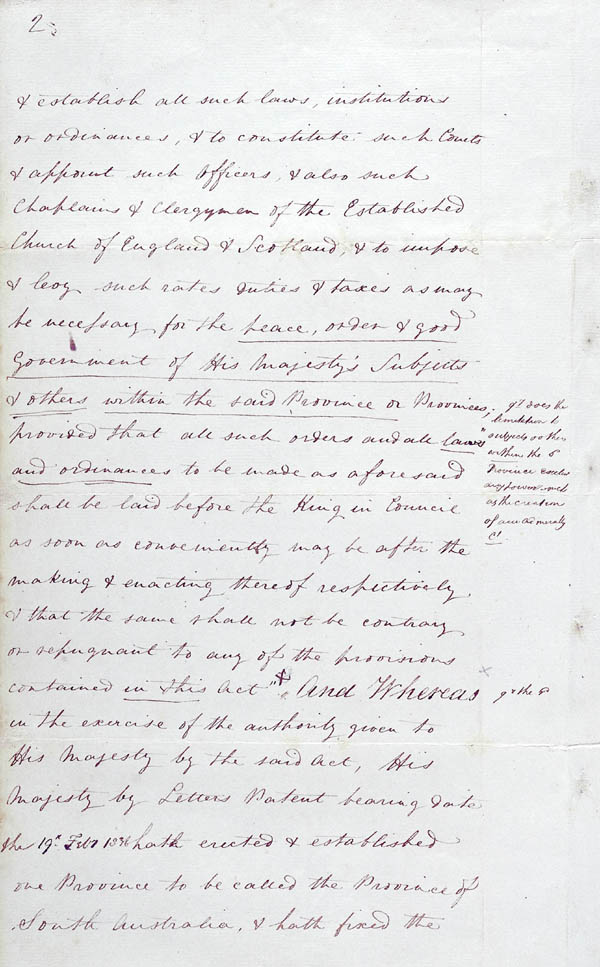 2
& establish all such laws, institutions
or ordinances, & to constitute such Courts
& appoint such officers, & also such
Chaplains & Clergymen of the Established
Church of England & Scotland, & to impose
& levy such rates duties & taxes as may
be necessary for the peace, order & good
Government of His Majesty's Subjects
& others within the said Province or Provinces;
provided that all such orders and all laws
and ordinances to be made as aforesaid
shall be laid before the King in Council
as soon as conveniently may be after the
making & enacting thereof respectively
& that the same shall not be contrary
or repugnant to any of the provisions
contained in this Act" And Whereas
in the exercise of the authority given to
His Majesty by the said Act, His
Majesty by Letters Patent bearing date
the 19th Feby 1836 hath erected & established
one Province to be called the Province of
South Australia, & hath fixed the
qy does the
limitation to
subjects or others
within the
Province
any power such
as the creation
of
qy the